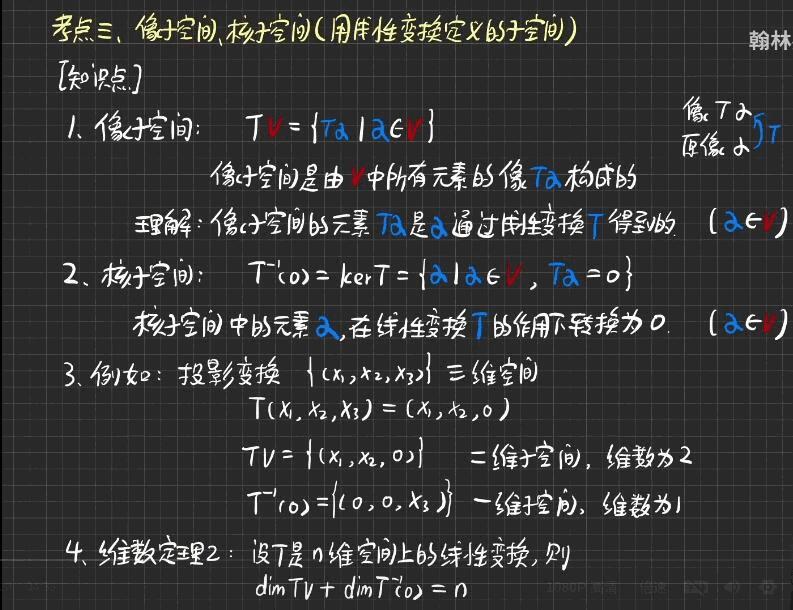 考点三、像子空间、核子空间(用线性变换定义的子空间)
翰林
[知识点]
1、像子空间: TV={Tα|α∈V}
像 Tα
原像 α T
像子空间是由V中所有元素的像Tα构成的
理解:像子空间的元素Tα是α通过线性变换T得到的. (α∈V)
2、核子空间: T⁻¹(0)=kerT={α|α∈V, Tα=0}
核子空间中的元素α,在线性变换T的作用下转换为0. (α∈V)
3、例如:投影变换 {(x₁,x₂,x₃)} 三维空间
T(x₁,x₂,x₃)=(x₁,x₂,0)
TV={(x₁,x₂,0)} 二维子空间,维数为2
T⁻¹(0)={(0,0,x₃)} 一维子空间,维数为1
4、维数定理2:设T是n维空间上的线性变换,则
dimTV+dimT⁻¹(0)=n
1080P 高清 倍速